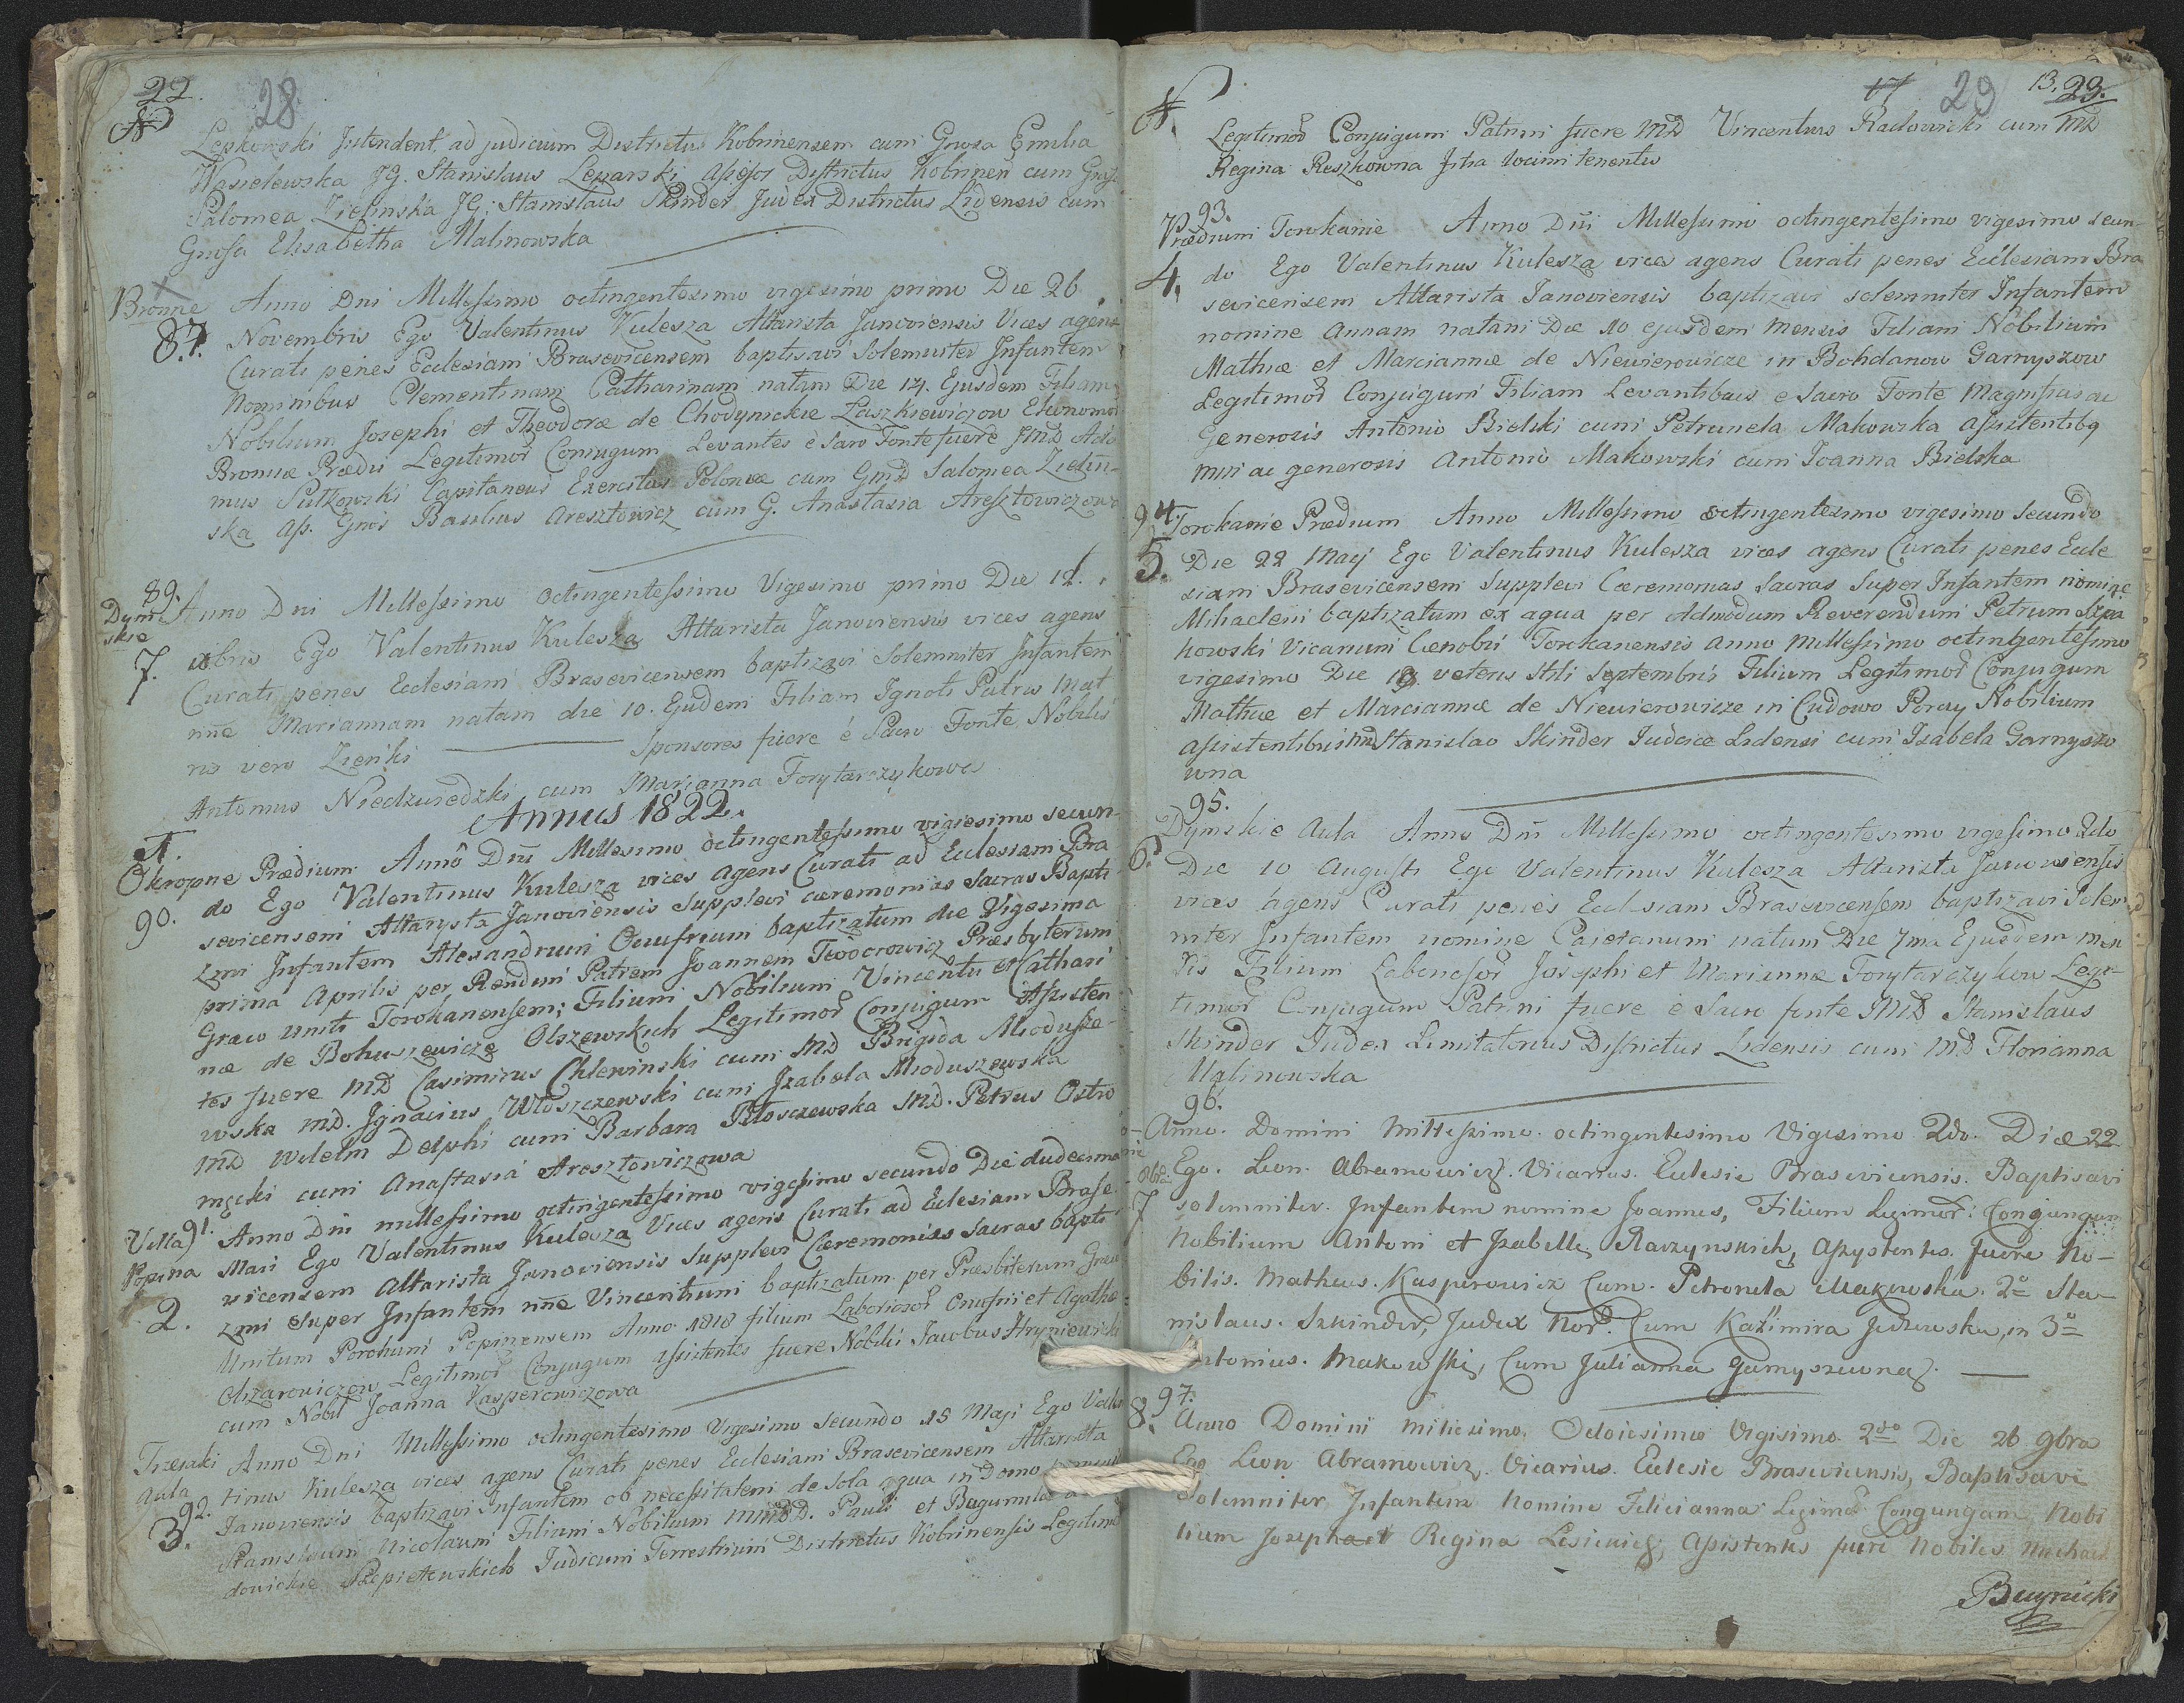 22.
28
Lepkowski Intendent ad judicium Districtus Kobrinensem cum Gnrosa Emilia
Wasielewska JG. Stanislaus Lezarski Assesor Districtus Kobrinen cum Gnrosa
Salomea Zielinska JG: Stanislaus Skinder Judex Districtus Lidensis cum
Gnrosa Elisabetha Malinowska
Bronne Anno Dni Millessimo octingentesimo vigesimo primo Die 26
87. Novembris Ego Valentinus Kulesza Altarista Janoviensis Vices agens
Curati penes Ecclesiam Brasevicensem baptisavi Solemniter Infantem
Nominibus Clementinam Catharinam natam Die 14. Ejusdem Filiam
Nobilium Josephi et Theodoræ de Chodynickie Laszkiewiczow Ekonomor
Bronnæ Prædii Legitimor Coniugum Levantes e Sacro Fonte fuere JMD Ado
mus Pulkowski Capitaneus Exercitus Polonæ cum GMD Salomea Zielin-
ska As. Gnros Basilius Aresztowicz cum G. Anastasia Aresztowiczowa
89.
Dym
skie
7.
Anno Dni Millessimo Octingentessimo Vigesimo primo Die 12.
xbris Ego Valentinus Kulesza Altarista Janoviensis vices agens
Curati penes Ecclesiam Brasevicensem baptizavi Solemniter Infantem
nne Mariannam natam die 10. Ejudem Filiam Ignoti Patris Mat
ris vero Zienki Sponsores fuere è Sacro Fonte Nobilis
Antonius Niedzwiedzki cum Marianna Forytarczykowa
Annus 1822.
1.
Okropne Prædium Anno Dni Millesimo octingentessimo vigiesimo secun-
90. do Ego Valentinus Kulesza vices agens Curati ad Ecclesiam Bra
sevicensem Altarysta Janoviensis Supplevi cæremonias Sacras Bapti
zmi Infantem Alesandrum Onufrium baptizatum die Vigesima
prima Aprilis per Rendum Patrem Joannem Teodorowicz Præsbyterum
Græco Uniti Torokanensem; Filium Nobilium Vincenti et Cathari
næ de Bohuszewicze Olszewskich Legitimor Conjugum Assisten
tes fuere MD Casimirus Chlewinski cum MD Brigida Miodusze-
wska MD. Ignacius Wloszczewski cum Izabela Mioduszewska
MD Wilelm Delphi cum Barbara Ploszczewska MD. Petrus Ostro
męcki cum Anastasia Aresztowiczowa
Villa 91. Anno Dni millessimo octingentessimo vigesimo secundo Die dudecima
Popina Maii Ego Valentinus Kulesza Vices agens Curati ad Eclesiam Brase
2. vicensem Altarista Janoviensis Supplevi Cæremonias Sacras bapti
zmi Super Infantem nne Vincentium baptizatum per Præsbiterum Græco
Unitum Parohum Popinensem Anno 1818 filium Laboriosor Onufrii et Agathæ
Olizarowiczow Legitimor Conjugum assistentes fuere Nobilis Jacobus Hryniewicki
cum Nobil Joanna Kasperowiczowa
Aula
92.
3.
Anno Dni Millessimo octingentesimo Vigesimo Secundo 15 Maji Ego Valen
tinus Kulesza vices agens Curati penes Ecclesiam Brasevicensem Altarista
Janoviensis baptizavi Infantem ob necessitatem de sola aqua in Domo
Stanislaum Nicolaum Filium Nobilium MMDD. Pauli et Bugumilæ
Judicum Terrestrium Districtus Kobrinensis Legitimor
17 29 13. 23.
Legitimor Conjugum Patrini fuere MD Vincentius Radowicki cum MD
Regina Reszkowna filia locum tenentis
93.
Prædium Torokanie Anno Dni Millessimo octingentessimo vigesimo secun-
4. do Ego Valentinus Kulesza vices agens Curati penes Ecclesiam Bra
sevicensem Altarista Janoviensis baptizavi solemniter Infantem
nomine Annam natam Die 10 ejusdem mensis Filiam Nobilium
Mathiæ et Marciannæ de Niewierowicze in Bohdanow Garnyszow
Legitimor Conjugum Filiam Levantibus e Sacro Fonte Magnificis ac
Generosis Antonio Bielski cum Petrunela Makowska Assistentibq
mni ac generosis Antonio Makowski cum Joanna Bielska
94. Torokanie Prædium Anno Millessimo octingentesimo vigesimo Secundo
5. Die 22 Maij Ego Valentinus Kulesza vices agens Curati penes Eccle
siam Brasevicensem Supplevi Cæremonias Sacras Super Infantem nomine
Mihaelem baptizatum ex aqua per Admodum Reverendum Petrum Szpa
kowski Vicarium Cœnobii Torokanensis Anno Millessimo octingentessimo
vigesimo Die 19. veteris Stili Septembris Filium Legitimor Conjugum
Mathiæ et Marciannæ de Niewierowicze in Cudowo Poray Nobilium
Assistentibus MD Stanislao Skinder Judice Lidensi cum Izabela Garnyszo
wna
95.
Dymskie Aula Anno Dni Millessimo octingentesimo vigessimo 2do
6. Die 10 Augusti Ego Valentinus Kulesza Altarista Janowiensis
vices agens Curati penes Ecclesiam Brasevicensem baptizavi Solem
niter Infantem nomine Caietanum natum Die 7ma Ejusdem men
sis Filium Laboriosor Josephi et Mariannæ Forytarczykow Legi-
timor Conjugum Patrini fuere è Sacro fonte MD Stanislaus
Skinder Judex Limitatorius Districtus Lidensis cum MD Florianna
Malinowska
96.
Anno. Domini Millessimo. octingentesimo Vigesimo 2do. Die 22
Ego. Leon. Abramowicz. Vicarius. Eclesie Brasevicensis. Baptisavi
7 solemniter. Infantem nomine Joannes, Filium Legimor: Congungum
Nobilium Antoni et Izabelle Raczynskich, Assystentes. fuere No-
bilis. Matheus. Kasperowicz Cum. Petronela Makowska. 2o Sta-
nislaus. Szkinder, Judex Nor. Cum Kazimira Judzewska, in 3o
Antonius. Makowski, Cum Julianna Garnyszewna.
97.
8. Anno Domini milesimo. Octoiesimo Vigisimo. 2do Die 26 9bra
Ego Leon Abramowicz. Vicarius. Eclesie Brasevicensis, Baptisavi
Solemniter Infantem Nomine Felicianna Legimor Congungum Nobi
lium Joseph et Regina Lesiewicz, Assistentes fuere Nobiles Michael
Buynicki